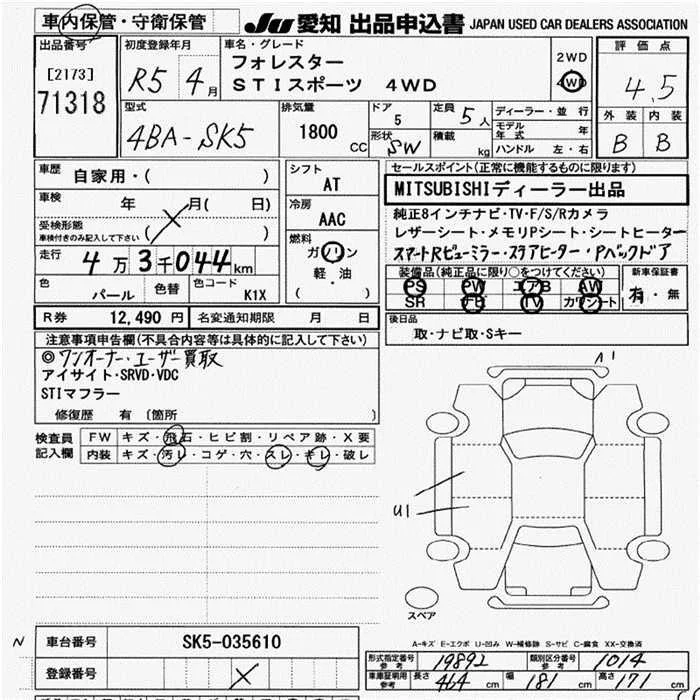 車内保管・守衛保管 JU 愛知 出品申込書 JAPAN USED CAR DEALERS ASSOCIATION
出品番号 [2173] 71318
初度登録年月 R5 4月
車名・グレード フォレスター STIスポーツ 4WD
2WD 4WD
評価点 4.5
外装 内装
B B
型式 4BA-SK5
排気量 1800 CC
ドア 5
形状 SW
定員 5人
積載 kg
ディーラー・並行
モデル年式 年
ハンドル 左・右
車歴 自家用・( )
車検 年 月( 日)
受検形態 車検付きのみ記入して下さい ( )
走行 4万3千044km
色 パール 色替 色コード K1X
シフト AT
冷房 AAC
燃料 ガソリン
軽・油
( )
セールスポイント(正常に機能するものに限ります)
MITSUBISHIディーラー出品
純正8インチナビ・TV・F/S/Rカメラ
レザーシート・メモリPシート・シートヒーター
スマートRビューミラー・ステアヒーター・Pバックドア
装備品(純正品に限り○をつけてください)
PS PW エアB AW
SR ナビ TV カワシート
新車保証書 有・無
R券 12,490 円 名変通知期限 月 日
後日品
取・ナビ取・Sキー
注意事項申告欄(不具合内容等は具体的に記入して下さい)
◎ワンオーナー・ユーザー買取
アイサイト・SRVD・VDC
STIマフラー
修復歴 有 〔箇所 〕
検査員記入欄
FW キズ・飛石・ヒビ割・リペア跡・X要
内装 キズ・汚レ・コゲ・穴・スレ・キレ・破レ
U1
スペア
A-キズ E-エクボ U-凹み W-補修跡 S-サビ C-腐食 XX-交換済
N
車台番号 SK5-035610
登録番号
形式指定番号 参考 19892 類別区分番号 参考 1014
車庫証明用 参考 長さ 464 cm 幅 181 cm 高さ 171 cm